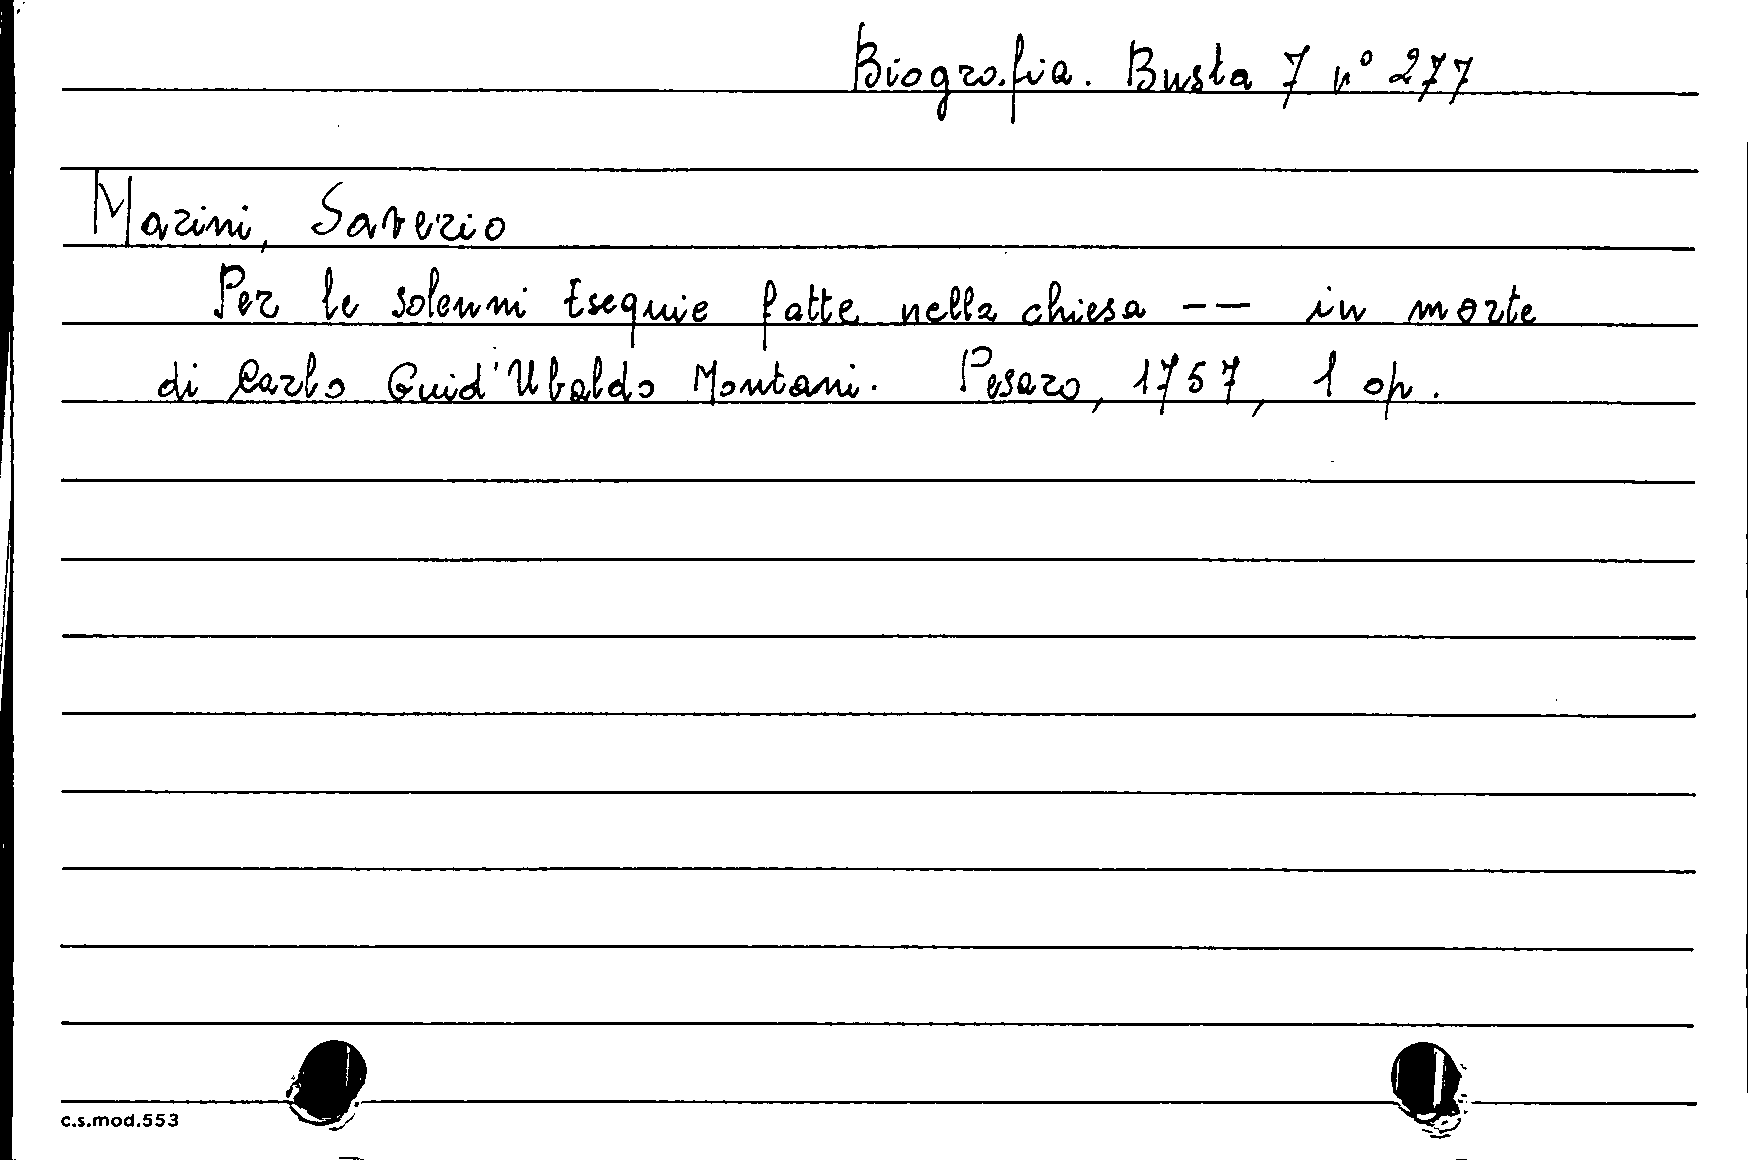 Biografia. Busta 7 n° 277
Marini, Saverio
Per le solenni Esequie fatte nella chiesa -- in morte
di Carlo Guid'Ubaldo Montani. Pesaro, 1757, 1 op.
c.s.mod.553